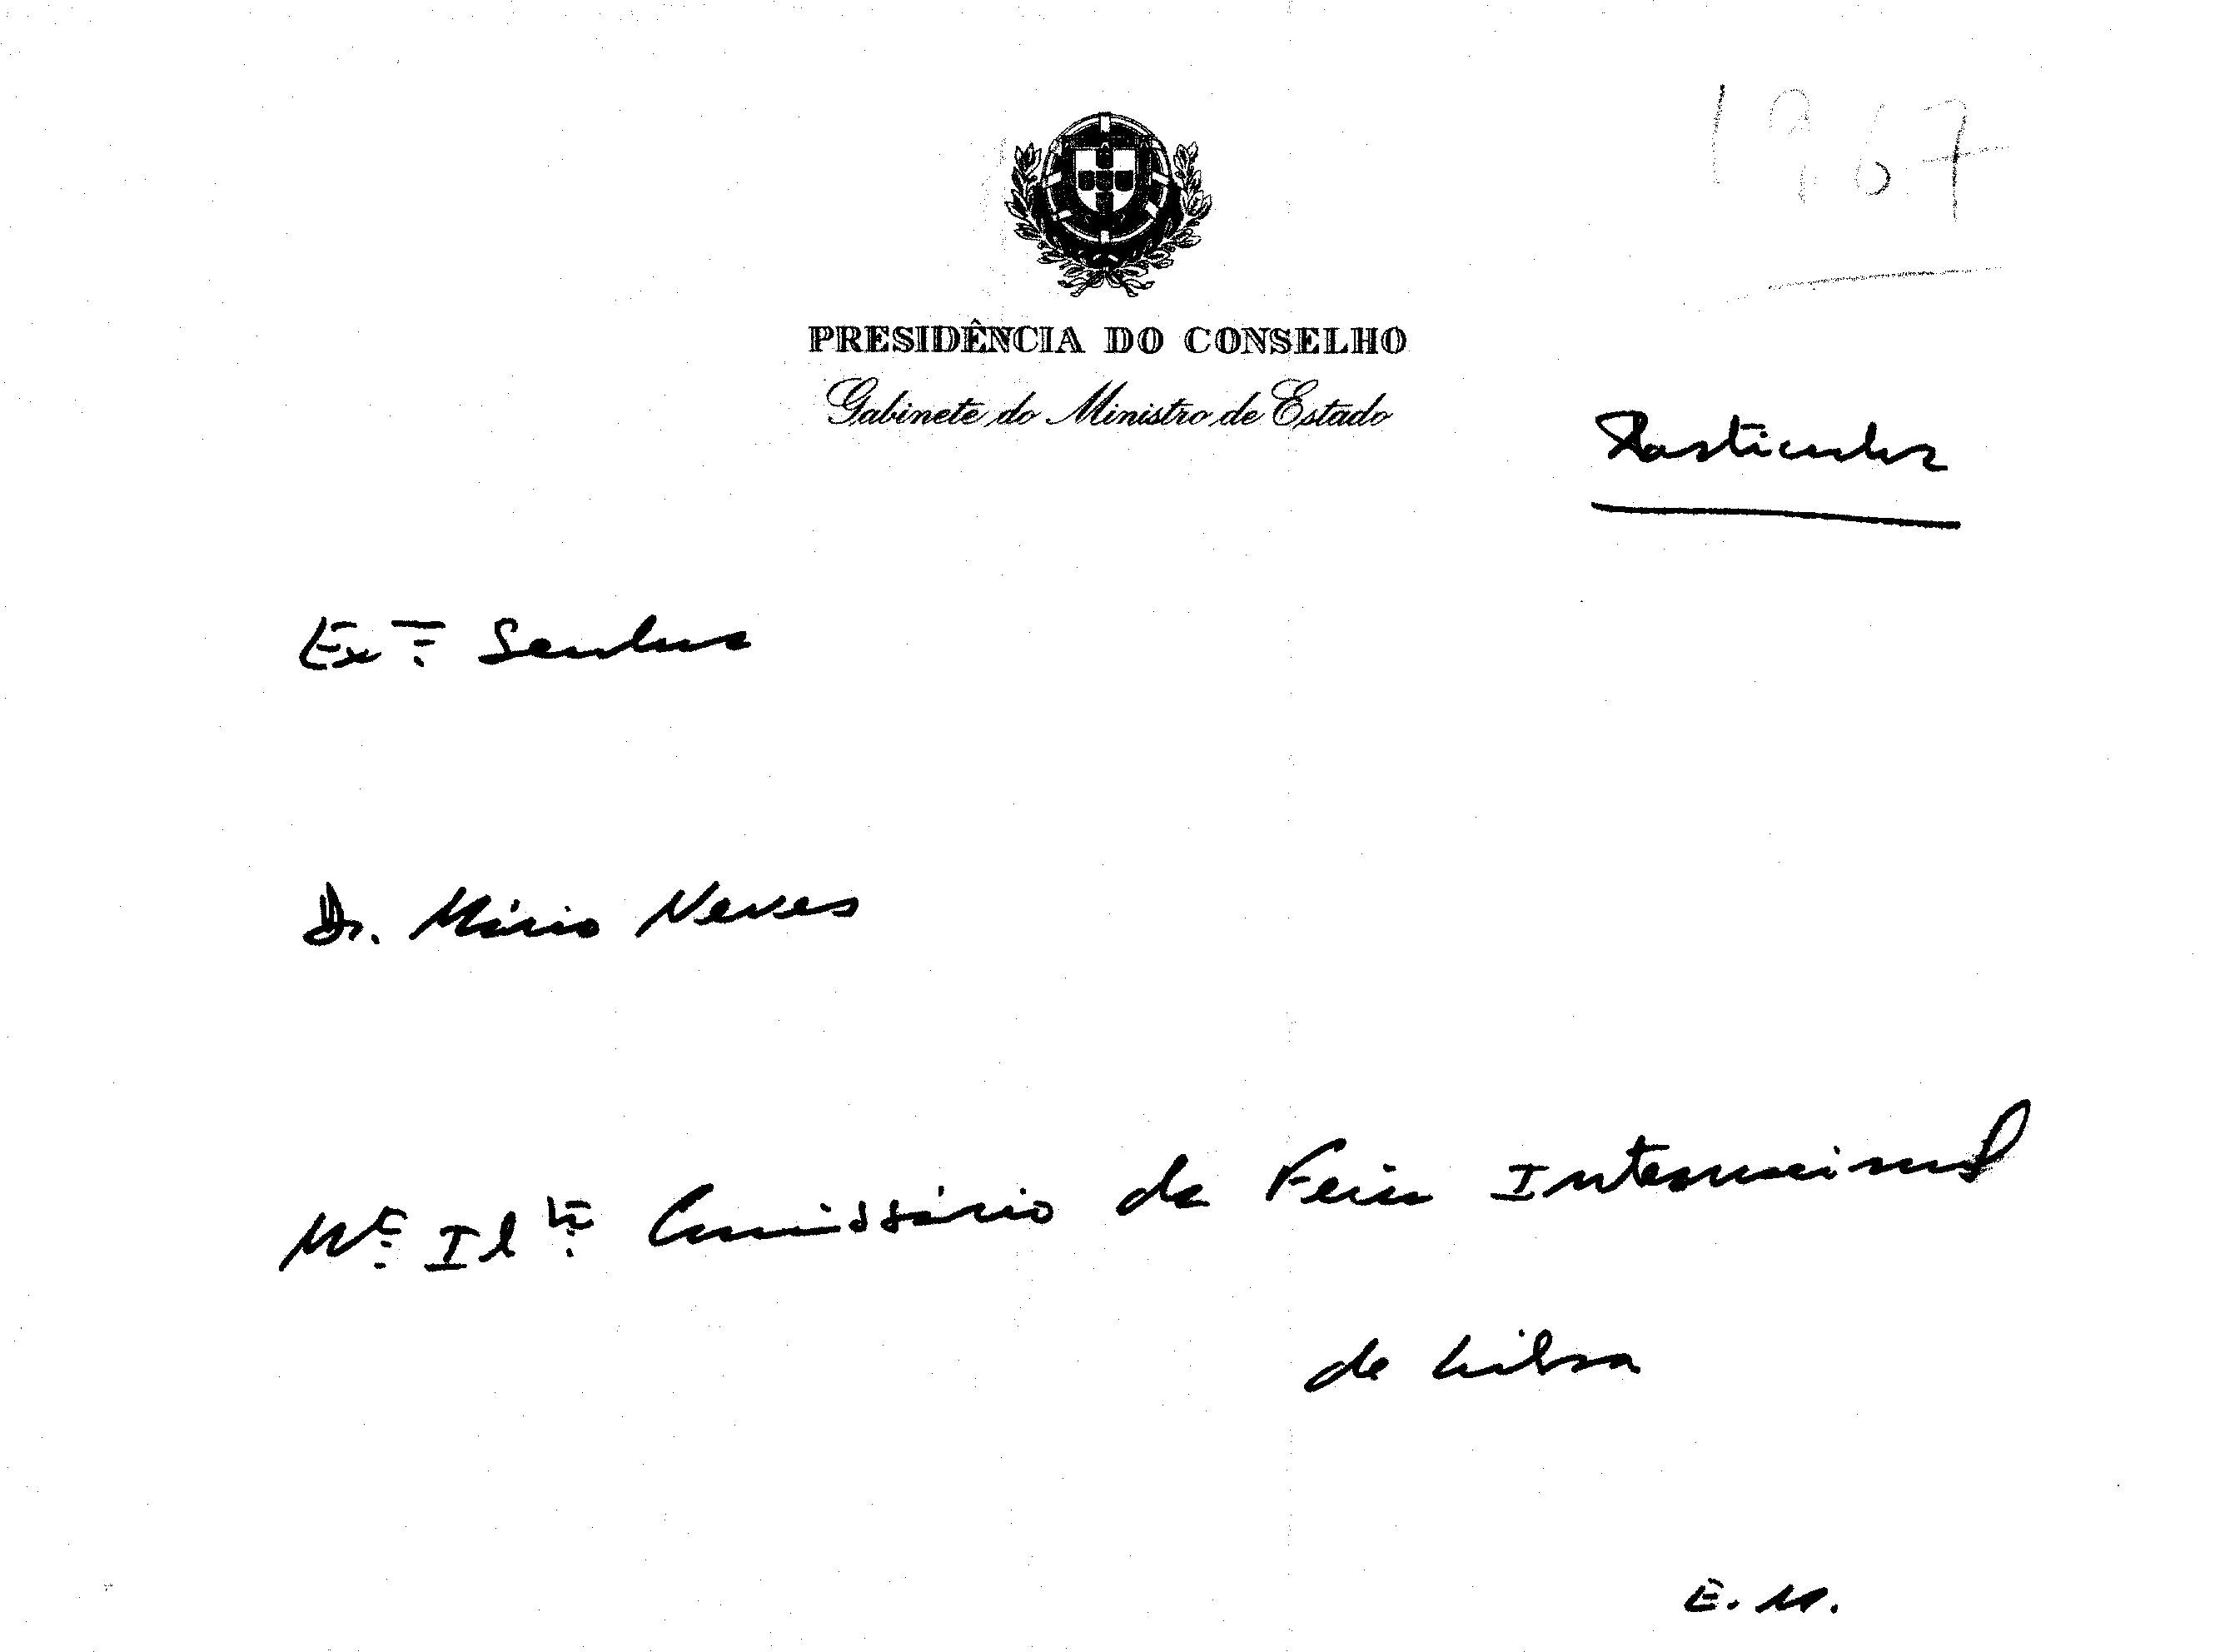 1967
PRESIDÊNCIA DO CONSELHO
Gabinete do Ministro de Estado
Particular
Ex.mo Senhor
Dr. Mário Neves
M.to Il.tre Comissário da Feira Internacional
de Lisboa
E. M.